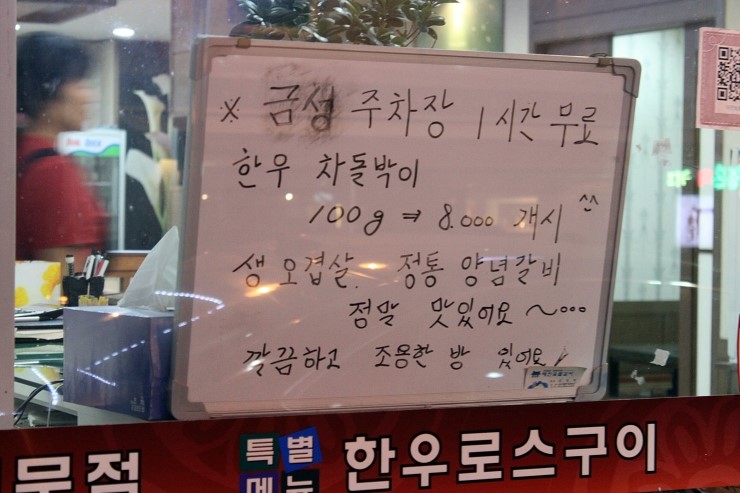 ※ 금성 주차장 1시간 무료
한우 차돌박이
100g ⇒ 8.000 개시 ^^
생 오겹살. 정통 양념갈비
정말 맛있어요 ~...
깔끔하고 조용한 방 있어요!
특별
메뉴
한우로스구이
문점